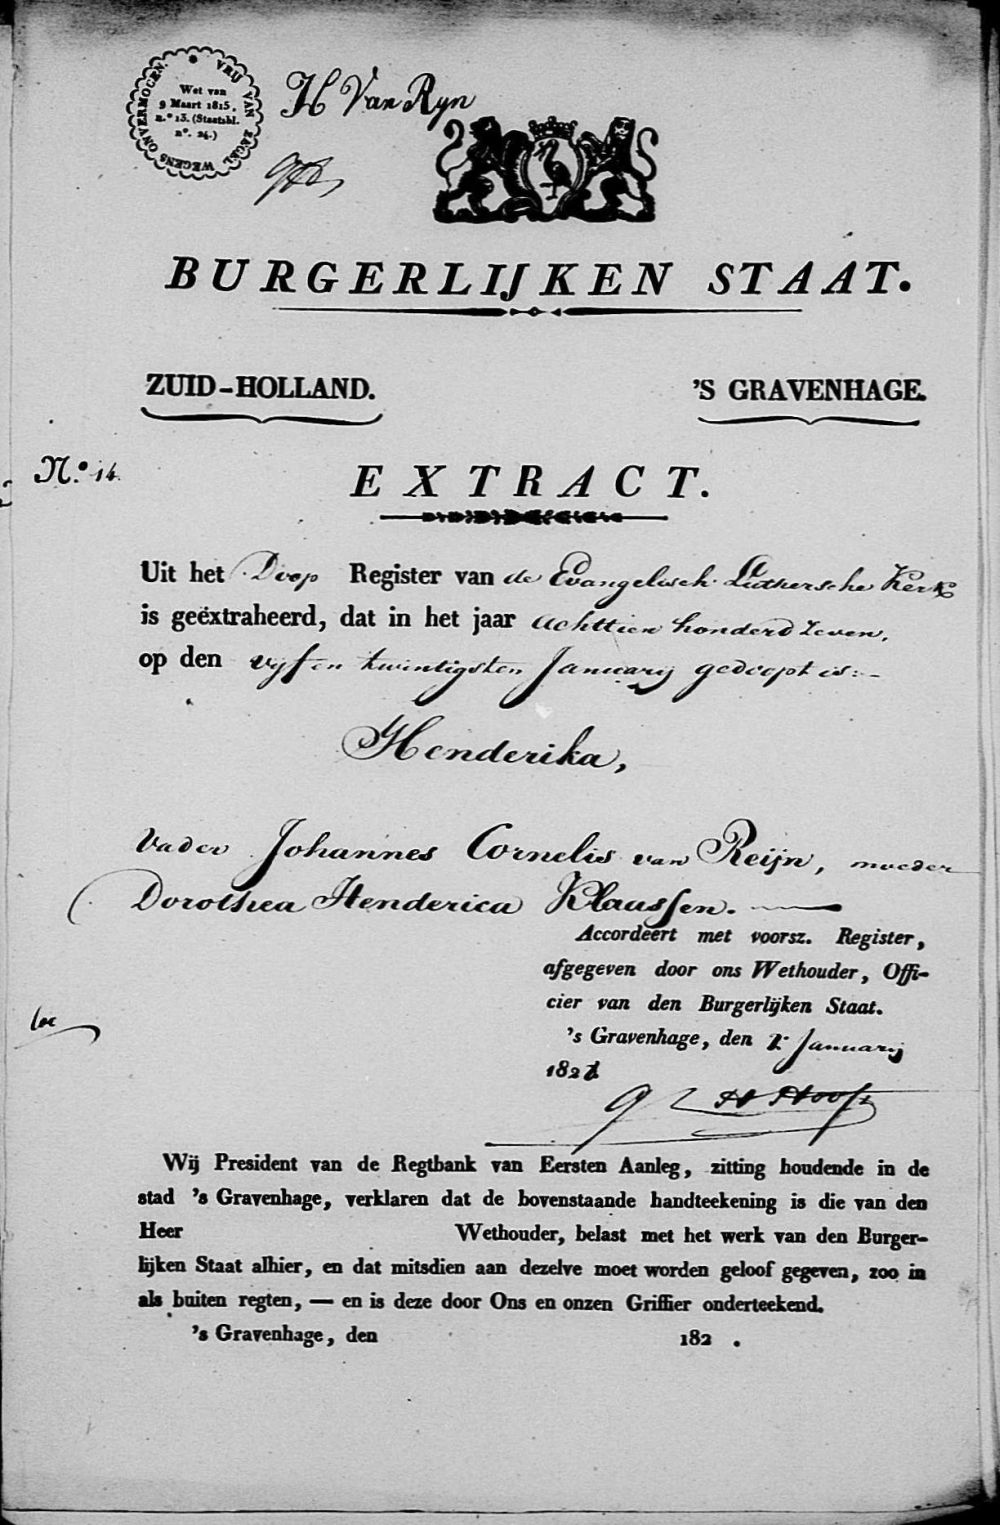 VRIJ VAN ZEGEL WEGENS ONVERMOGEN.
Wet van
9 Maart 1815,
n.º 13. (Staatsbl.
nº. 24.)
H Van Ryn
BURGERLIJKEN STAAT.
ZUID-HOLLAND. 'S GRAVENHAGE.
N.º 14.
EXTRACT.
Uit het Doop Register van de Evangelisch Luthersche Kerk
is geëxtraheerd, dat in het jaar achttien honderd zeven,
op den vijf en twintigsten Januarij gedoopt is:-
Henderika,
Vader Johannes Cornelis van Reijn, moeder
Dorothea Henderica Klaussen.
Accordeert met voorsz. Register,
afgegeven door ons Wethouder, Offi-
cier van den Burgerlijken Staat.
's Gravenhage, den 2 Januarij
182
Wij President van de Regtbank van Eersten Aanleg, zitting houdende in de
stad 's Gravenhage, verklaren dat de bovenstaande handteekening is die van den
Heer Wethouder, belast met het werk van den Burger-
lijken Staat alhier, en dat mitsdien aan dezelve moet worden geloof gegeven, zoo in
als buiten regten, — en is deze door Ons en onzen Griffier onderteekend.
's Gravenhage, den 182 .